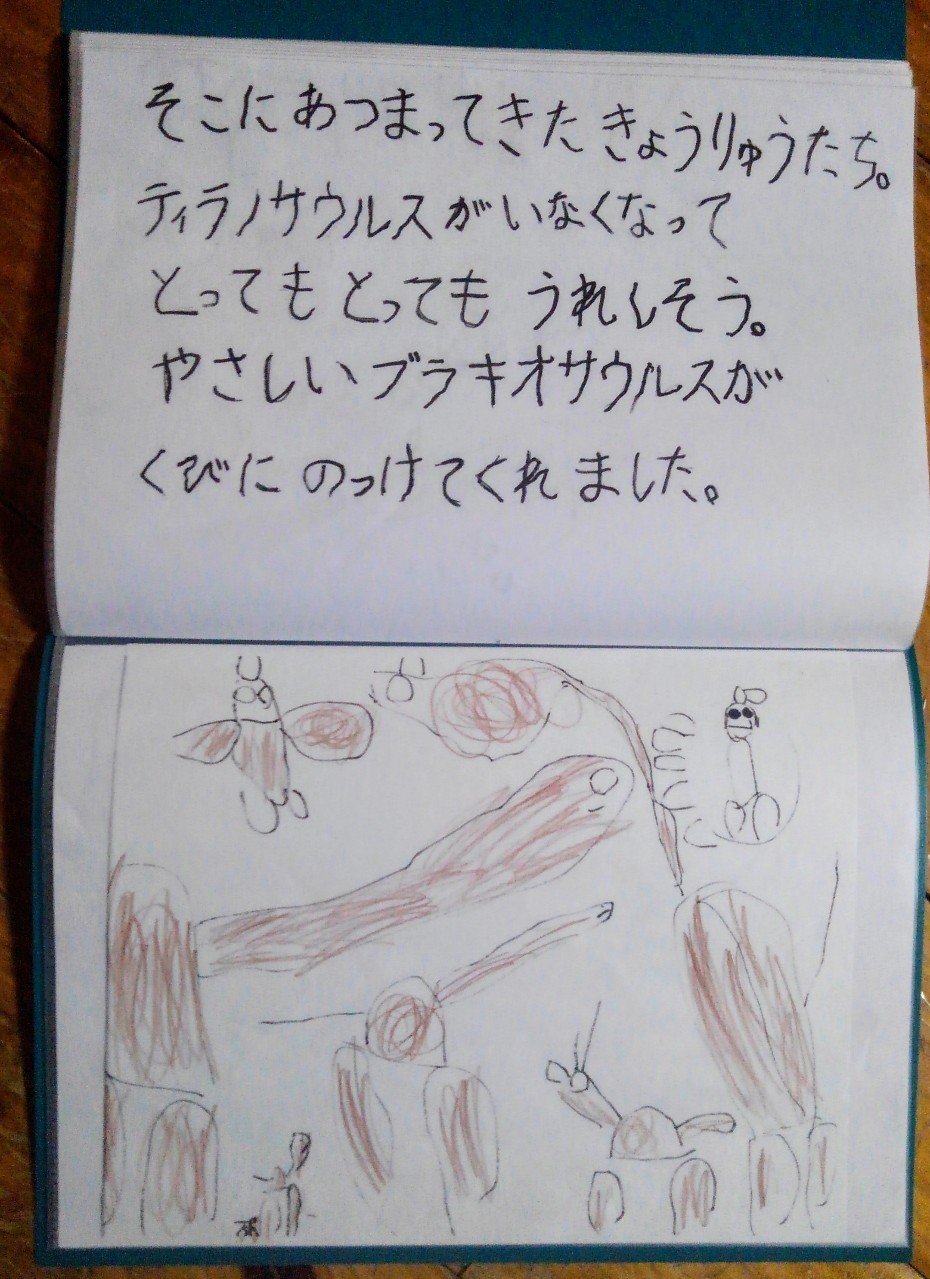 そこにあつまってきた きょうりゅうたち。
ティラノサウルスがいなくなって
とっても とっても うれしそう。
やさしいブラキオサウルスが
くびに のっけてくれました。